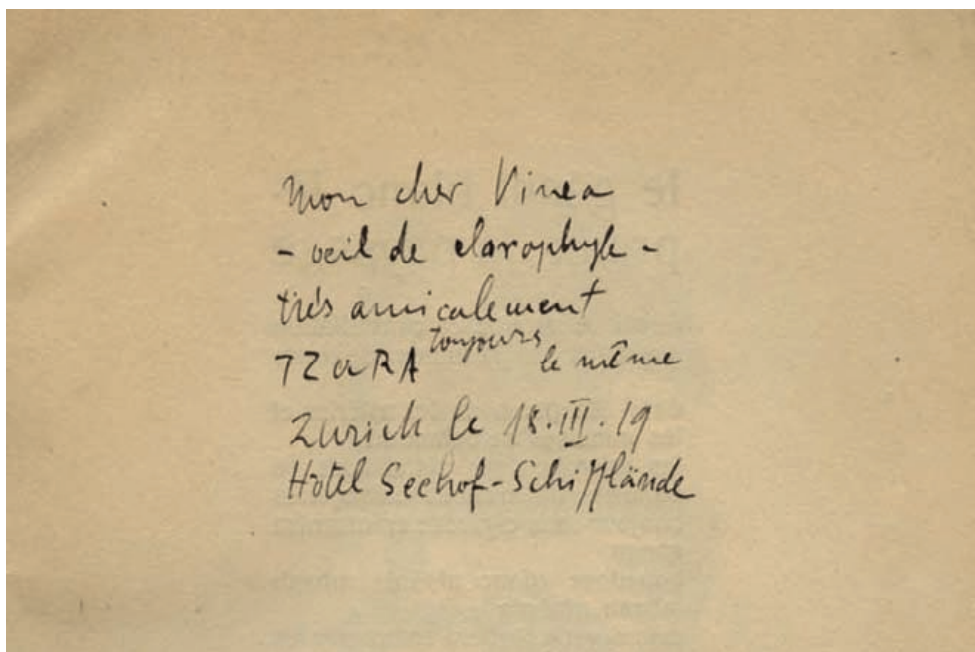 Mon cher Vinea
- oeil de clorophyle -
très amicalement
TZARA toujours le même
Zurich le 18.III.19
Hôtel Seehof-Schifflände